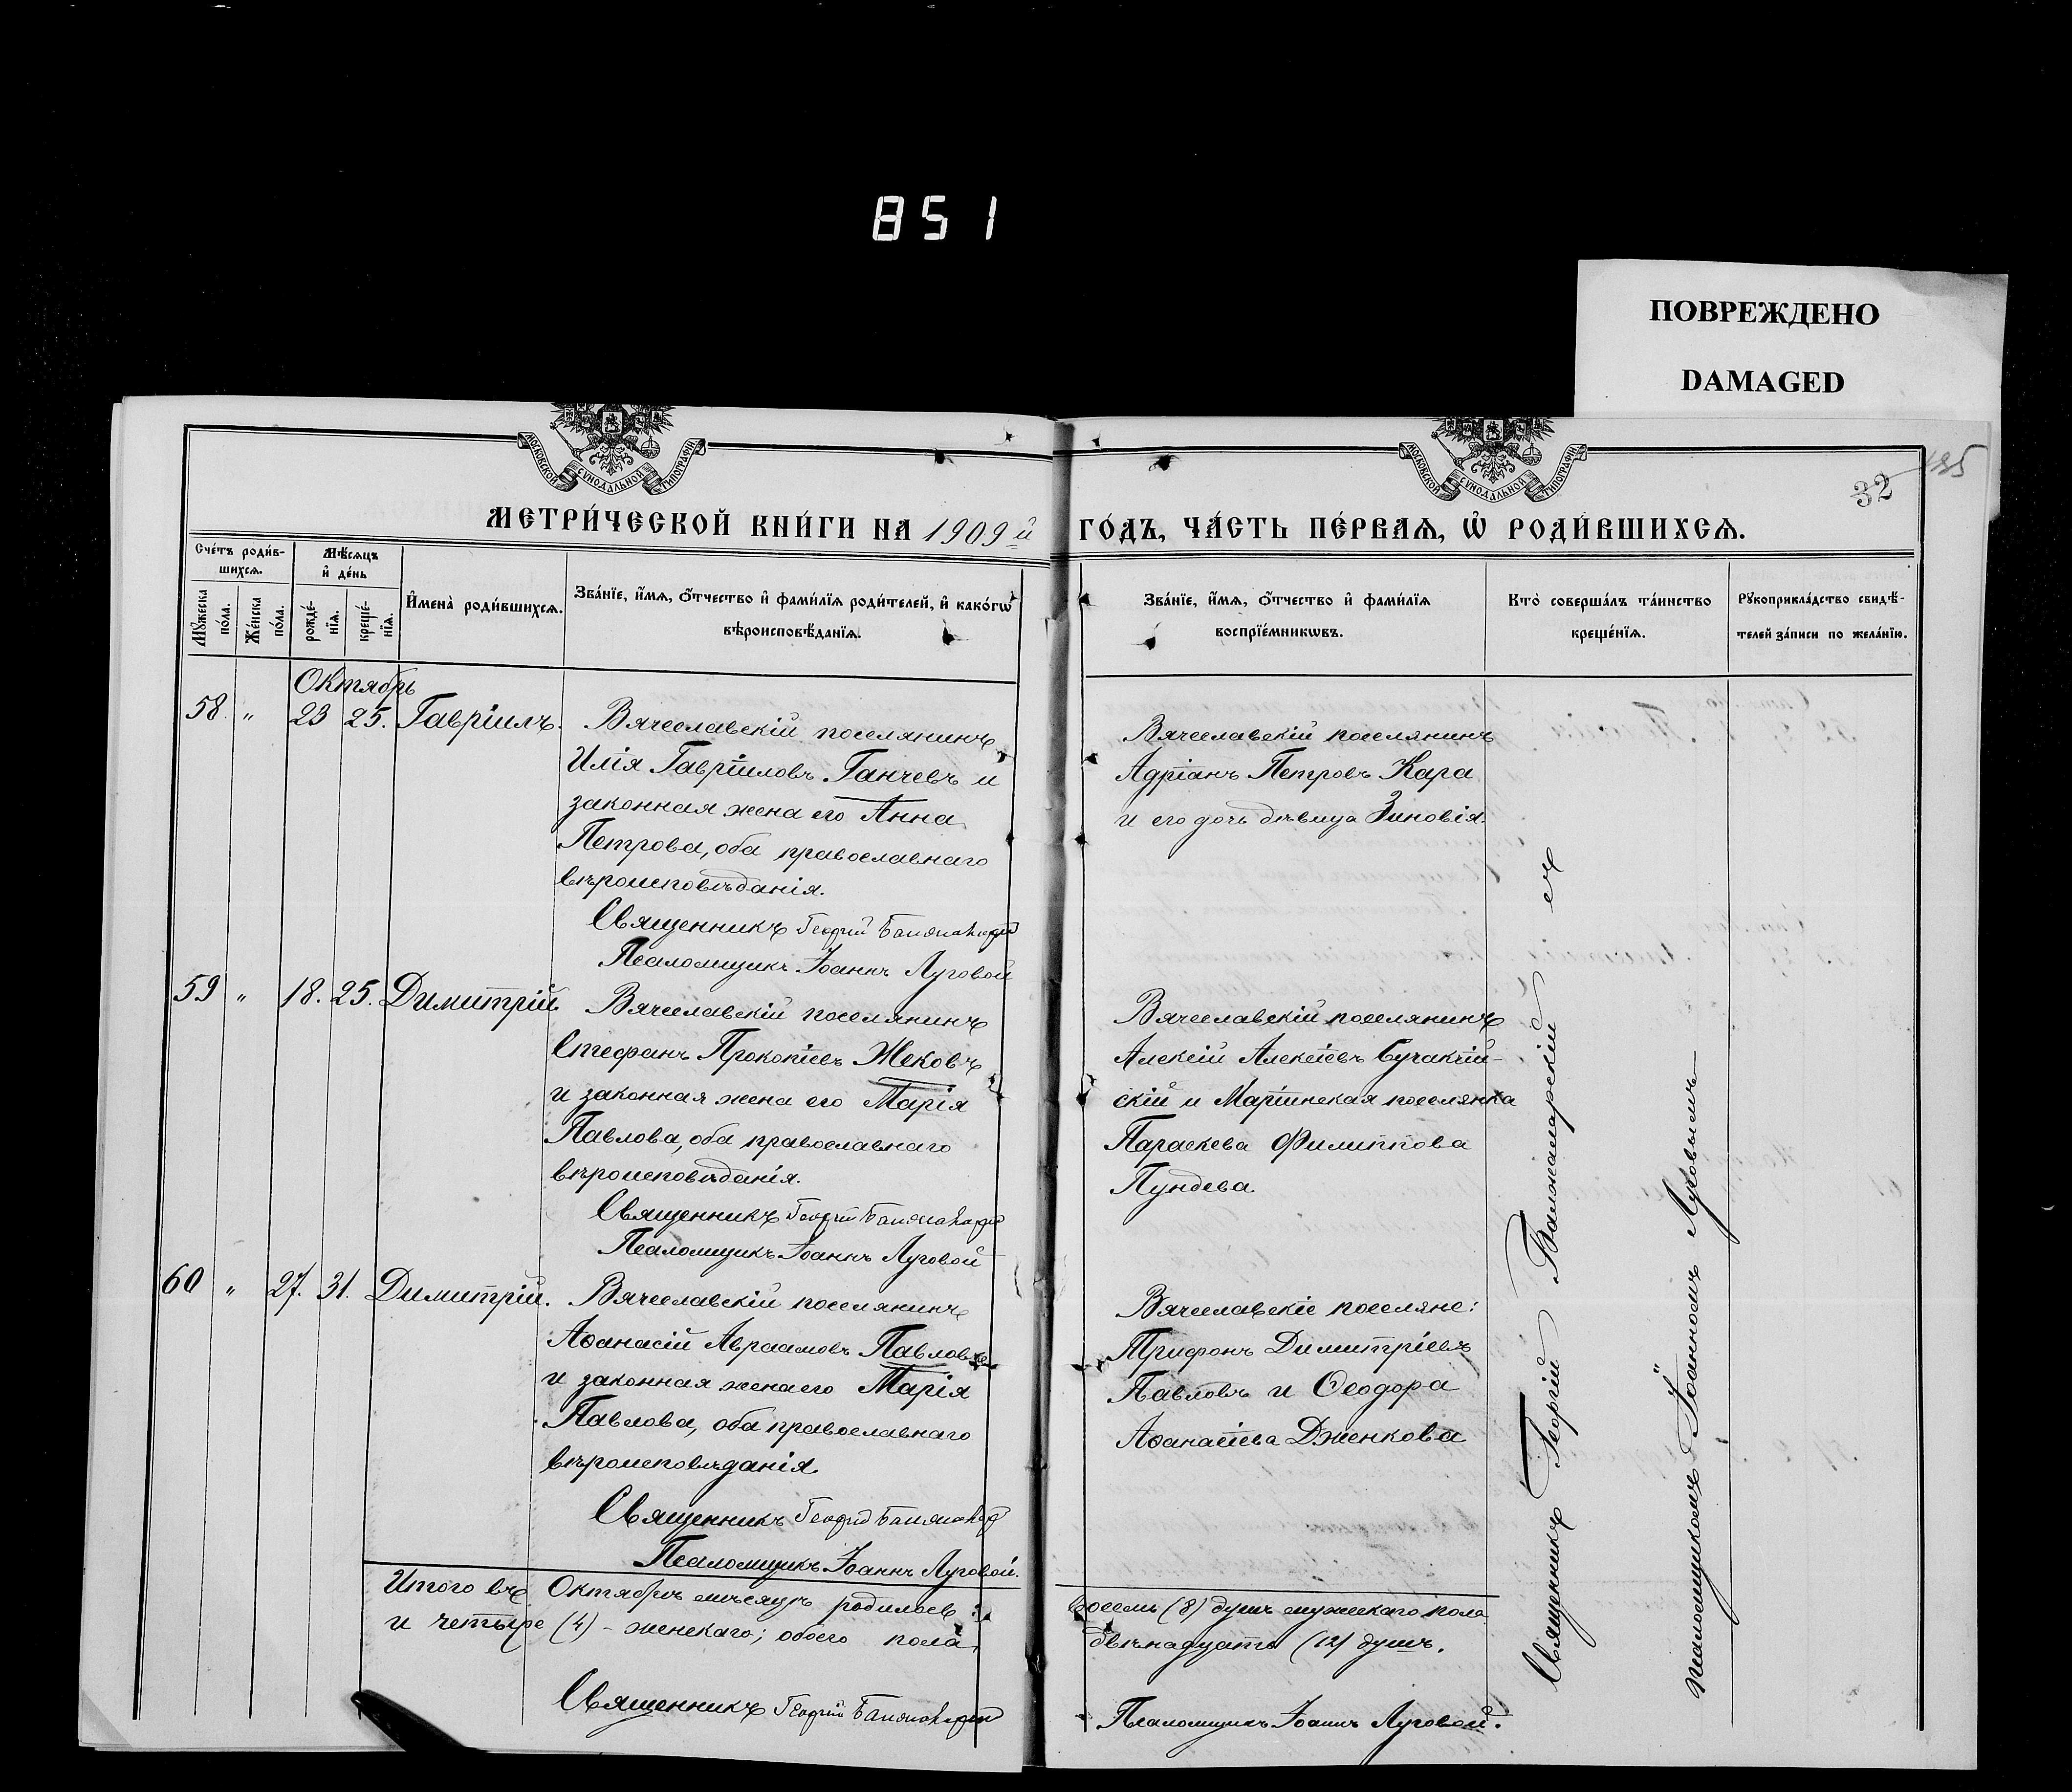 851
ПОВРЕЖДЕНО
DAMAGED
МОСКОВСКОЙ СУНОДАЛЬНОЙ ТИПОГРАФІИ
МОСКОВСКОЙ СУНОДАЛЬНОЙ ТИПОГРАФІИ
32
МЕТРИ́ЧЕСКОЙ КНИ́ГИ НА 1909 й ГО́ДЪ, ЧА́СТЬ ПЕ́РВАѦ, Ѡ҆ РОДИ́ВШИХСѦ.
Сче́тъ роди́в-
шихсѧ.
Мѣ́сѧцъ
и҆ де́нь
Мꙋ́жеска
по́ла.
Же́нска
по́ла.
рожде́-
нїѧ.
креще́-
нїѧ.
И҆мена̀ роди́вшихсѧ.
Зва́нїе, и҆́мѧ, ѻ҆́тчество и҆ фами́лїѧ роди́телей, и҆ како́гѡ
вѣроисповѣ́данїѧ.
Зва́нїе, и҆́мѧ, ѻ҆́тчество и҆ фами́лїѧ
воспрїе́мникѡвъ.
Кто̀ соверша́лъ та́инство
креще́нїѧ.
Рꙋкоприкла́дство свидѣ́-
телей за́писи по жела́нїю.
Октябрь
58. " 23 25. Гавріилъ. Вячеславскій поселянинъ
Илія Гавріиловъ Ганчевъ и
законная жена его Анна
Петрова, оба православнаго
вѣроисповѣданія.
Священникъ Георгій
Псаломщикъ Іоаннъ Луговой
Вячеславскій поселянинъ
Адріанъ Петровъ Кара
и его дочь дѣвица Зиновія.
59 " 18. 25. Димитрій Вячеславскій поселянинъ
Стефанъ Прокопіевъ Жековъ
и законная жена его Марія
Павлова, оба православнаго
вѣроисповѣданія.
Священникъ Георгій
Псаломщикъ Іоаннъ Луговой
Вячеславскій поселянинъ
Алексій Алексіевъ Бучакчій-
скій и Маріинская поселянка
Параскева Филиппова
Пундева
60 " 27. 31. Димитрій. Вячеславскій поселянинъ
Аѳанасій Авраамовъ Павловъ
и законная жена его Марія
Павлова, оба православнаго
вѣроисповѣданія
Священникъ Георгій
Псаломщикъ Іоаннъ Луговой.
Вячеславскіе поселяне:
Трифонъ Димитріевъ
Павловъ и Ѳеодора
Аѳанасіева Дженкова
Священникъ Георгій съ
псаломщикомъ Іоанномъ Луговымъ
Итого въ Октябрѣ мѣсяцѣ родилось: восемь (8) душъ мужескаго пола
и четыре (4) - женскаго; обоего пола двѣнадцать (12) душъ.
Священникъ Георгій
Псаломщикъ Іоаннъ Луговой.